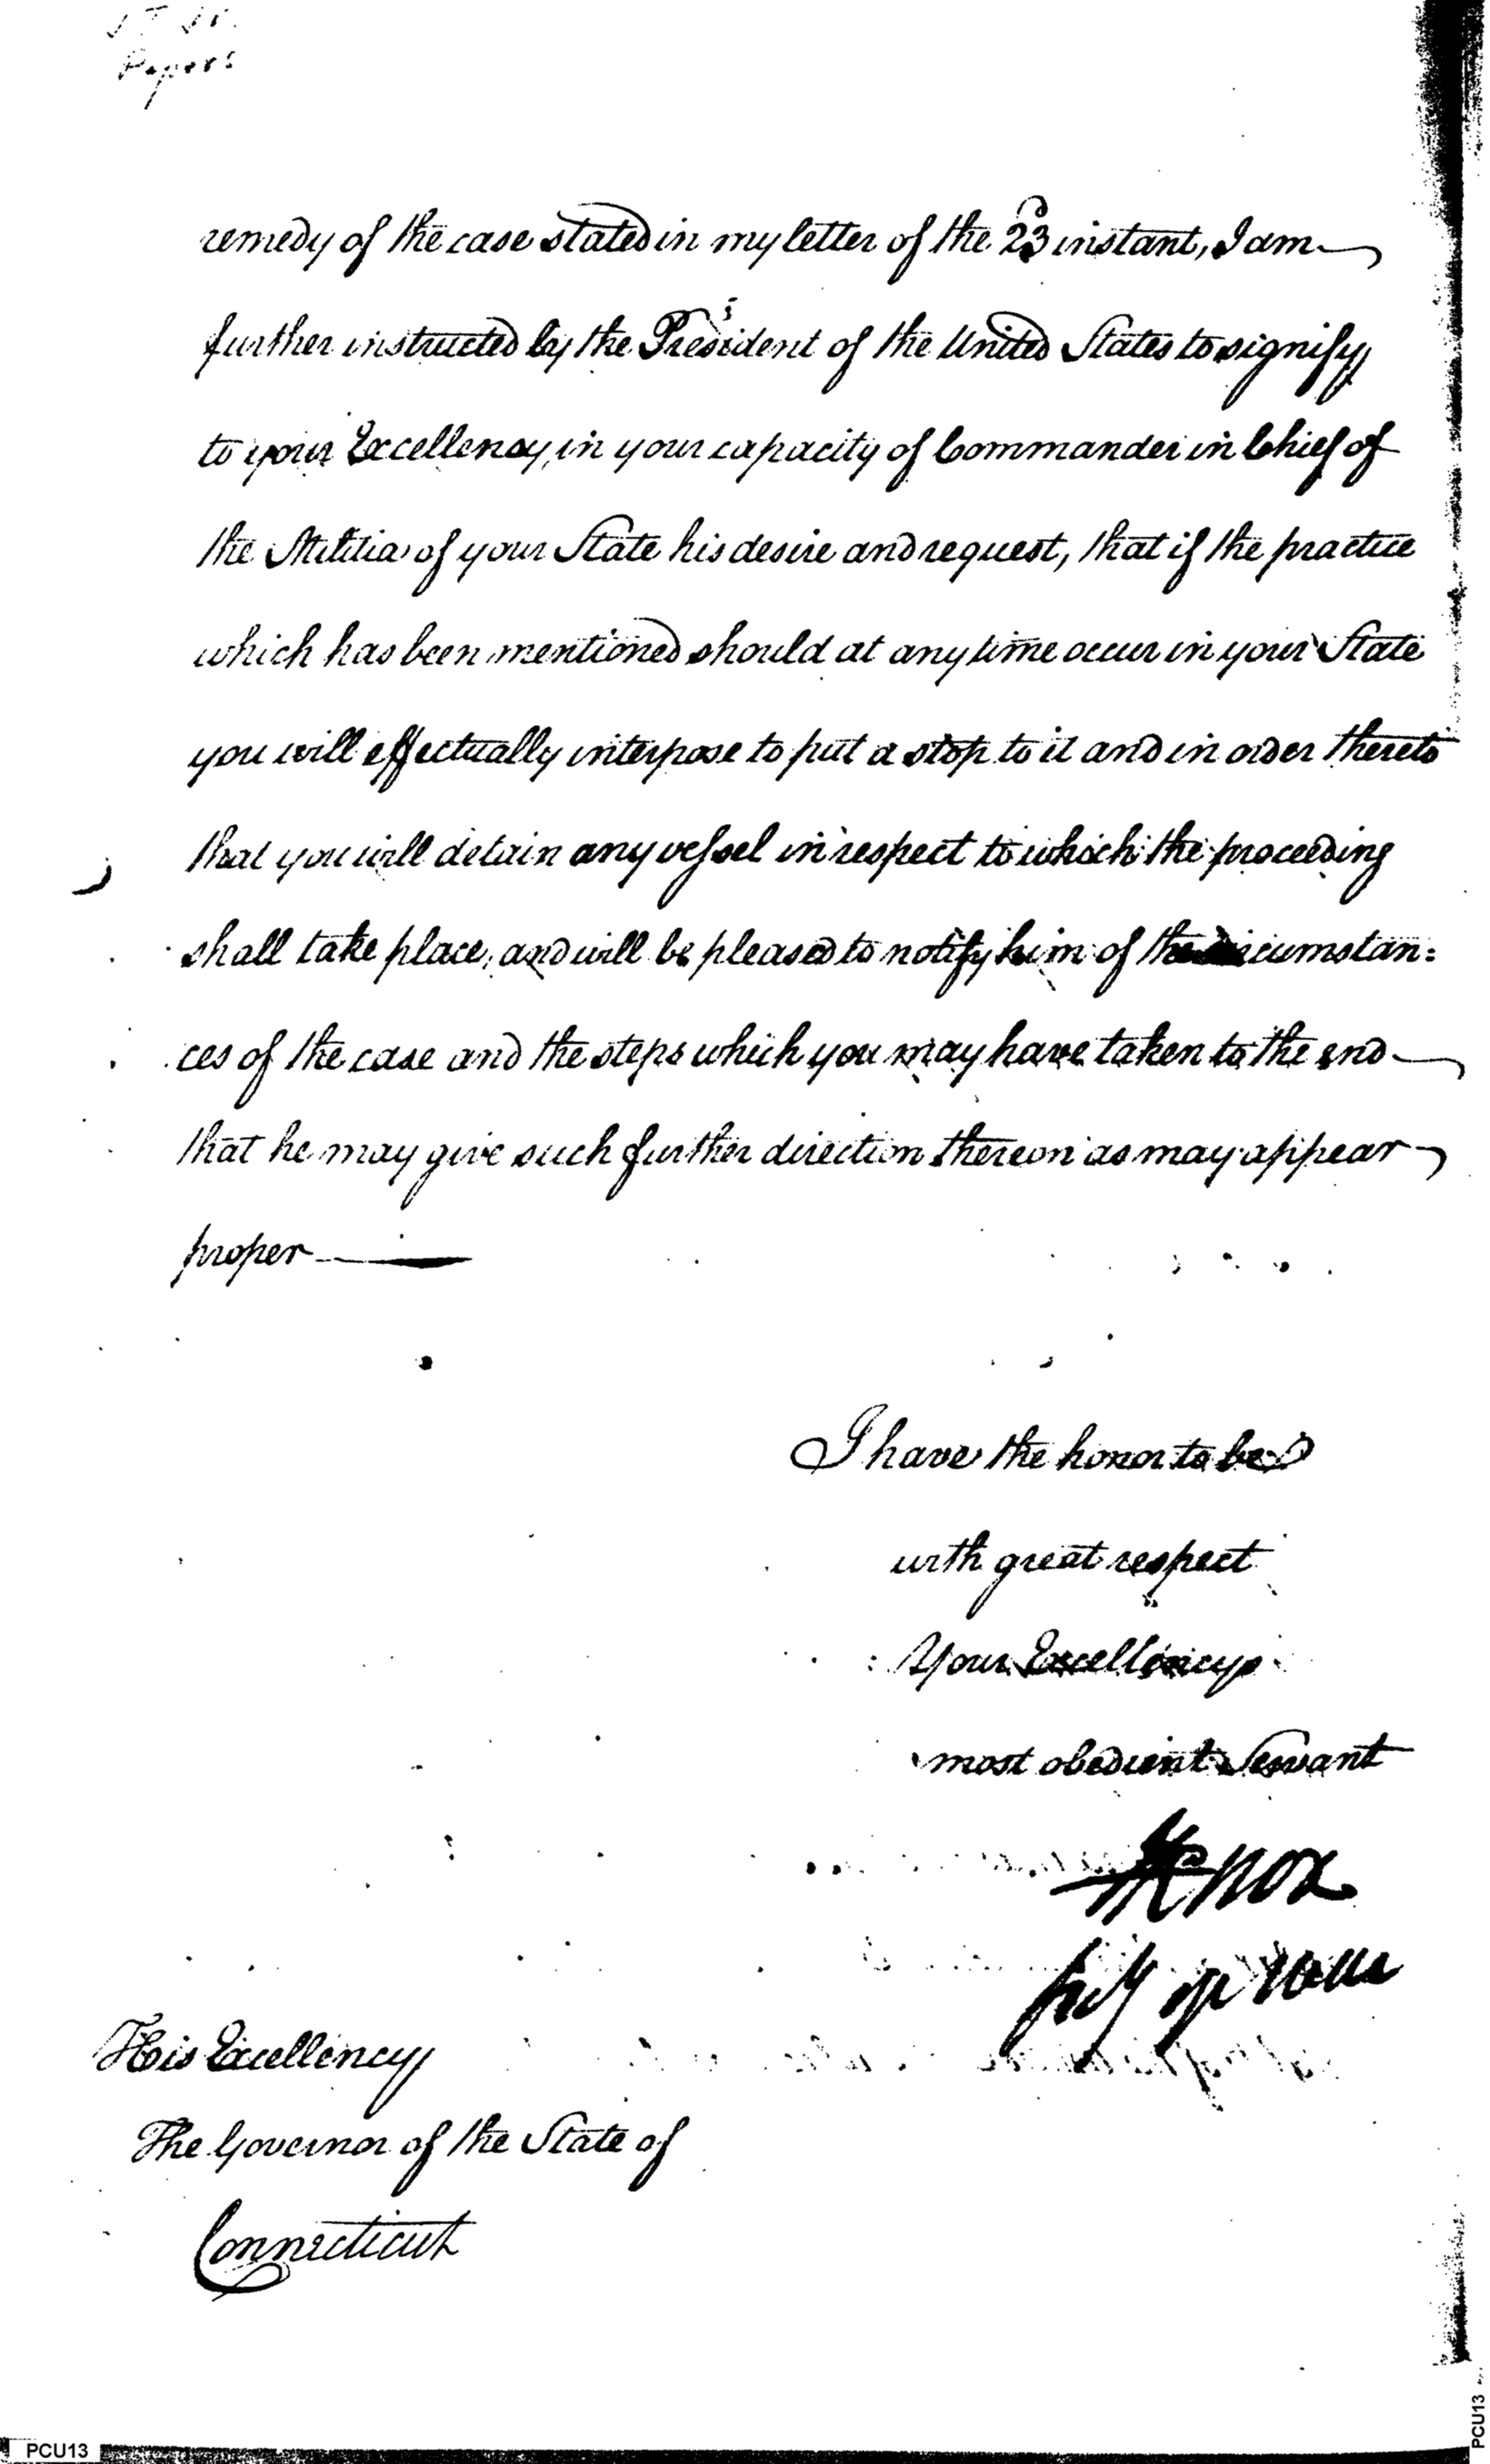 Papers
remedy of the case stated in my letter of the 23d instant, I am
further instructed by the President of the United States to signify
to your Excellency, in your capacity of Commander in Chief of
the Militia of your State his desire and request, that if the practice
which has been mentioned should at any time occur in your State
you will effectually interpose to put a stop to it and in order thereto
that you will detain any vessel in respect to which the proceeding
shall take place, and will be pleased to notify him of the circumstan=
ces of the case and the steps which you may have taken to the end
that he may give such further direction thereon as may appear
proper
I have the honor to be
with great respect
Your Excellencys
most obedient Servant
HKnox
secy of War
His Excellency
The Governor of the State of
Connecticut
PCU13
PCU13